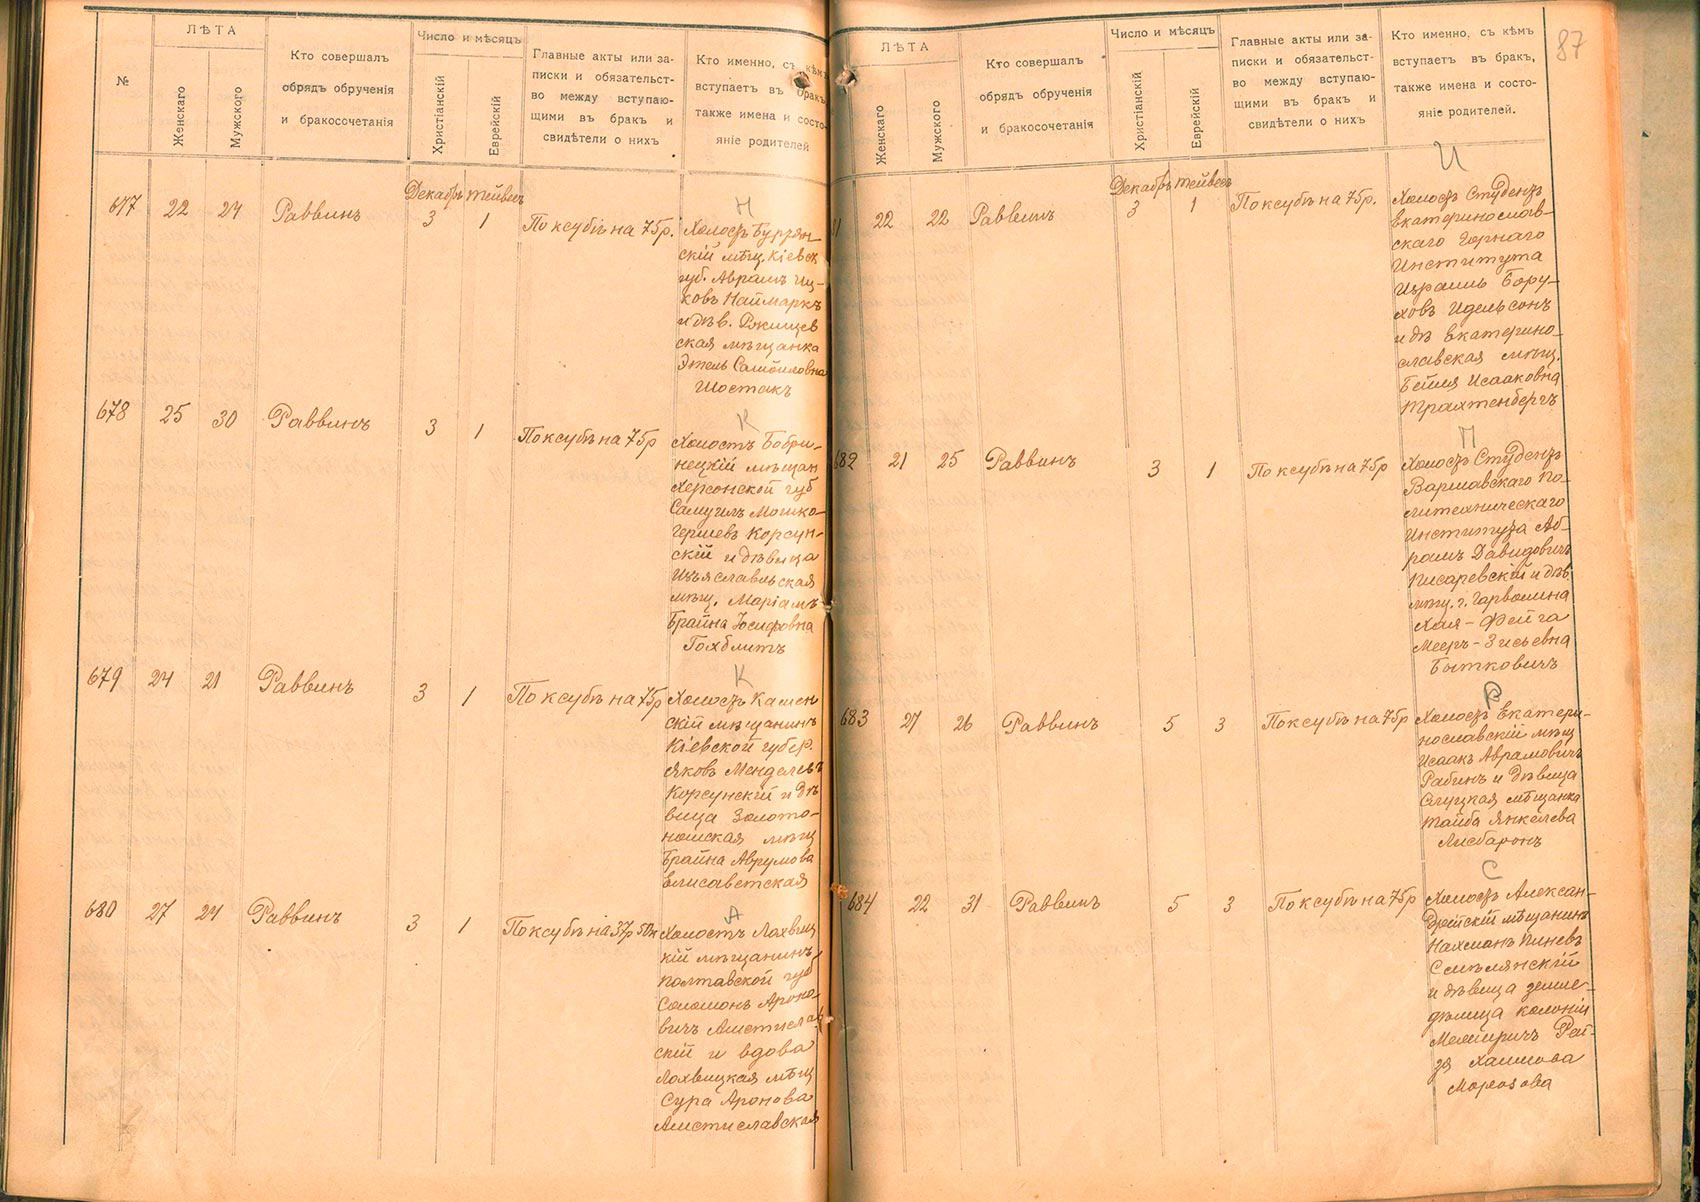 №
ЛѢТА
Женскаго
Мужского
Кто совершалъ
обрядъ обрученія
и бракосочетанія
Число и мѣсяцъ
Христіанскій
Еврейскій
Главные акты или за-
писки и обязательст-
во между вступаю-
щими въ бракъ и
свидѣтели о нихъ
Кто именно, съ кѣмъ
вступаетъ въ бракъ,
также имена и состо-
яніе родителей
677 22 24 Раввинъ
Декабрь Тейвесъ
3 1
По ксубѣ на 75 р.
Н
Холостъ
скій мѣщ. Кіевск
губ. Аврамъ Иц-
ковъ Наймаркъ
и дѣв. Ржищев
ская мѣщанка
Этель Самойловна
Шостакъ
678 25 30 Раввинъ 3 1 По ксубѣ на 75 р
К
Холостъ Бобри-
нецкій мѣщан
Херсонской губ
Самуилъ Мошко-
Гершевъ Корсун-
скій и дѣвица
Изъяславльская
мѣщ. Маріамъ
Брайна Іосифовна
Гохблитъ
679 24 21 Раввинъ 3 1 По ксубѣ на 75 р
К
Холостъ Камен
скій мѣщанинъ
Кіевской губер.
Яковъ Менделевъ
Корсунскій и дѣ
вица Золото-
ношская мѣщ
Брайна Аврумова
Елисаветская
680 27 24 Раввинъ 3 1 По ксубѣ на 37 р 50 к
А
Холостъ Лохвиц
кій мѣщанинъ
Полтавской губ
Соломонъ Ароно-
вичъ Амстислав
скій и вдова
Лохвицкая мѣщ
Сура Аронова
Амстиславская
87
ЛѢТА
Женскаго
Мужского
Кто совершалъ
обрядъ обрученія
и бракосочетанія
Число и мѣсяцъ
Христіанскій
Еврейскій
Главные акты или за-
писки и обязательст-
во между вступаю-
щими въ бракъ и
свидѣтели о нихъ
Кто именно, съ кѣмъ
вступаетъ въ бракъ,
также имена и состо-
яніе родителей.
81 22 22 Раввинъ
Декабрь Тейвесъ
3 1
По ксубѣ на 75 р.
И
Холостъ Студентъ
Екатеринослав-
скаго Горнаго
Института
Израиль Бору-
ховъ Идельсонъ
и дѣ Екатерино-
славская мѣщ.
Бейля Исааковна
Трахтенбергъ
682 21 25 Раввинъ 3 1 По ксубѣ на 75 р
П
Холостъ Студентъ
Варшавскаго По-
литехническаго
Института Аб-
рамъ Давидовичъ
Писаревскій и дѣв
мѣщ. г. Гарволина
Хая-Фейга
Мееръ-Зисьевна
Бытковичъ
683 27 26 Раввинъ 5 3 По ксубѣ на 75 р
Р
Холостъ Екатери-
нославскій мѣщ
Исаакъ Аврамовичъ
Рабинъ и дѣвица
Слуцкая мѣщанка
Тайба Янкелева
Лисбаронъ
684 22 31 Раввинъ 5 3 По ксубѣ на 75 р
С
Холостъ Алексан-
дрійскій мѣщанинъ
Нахманъ Пиневъ
Смѣлянскій
и дѣвица земле-
дѣлица колоніи
Межиричъ Рей-
зя Хаимова
Морозова